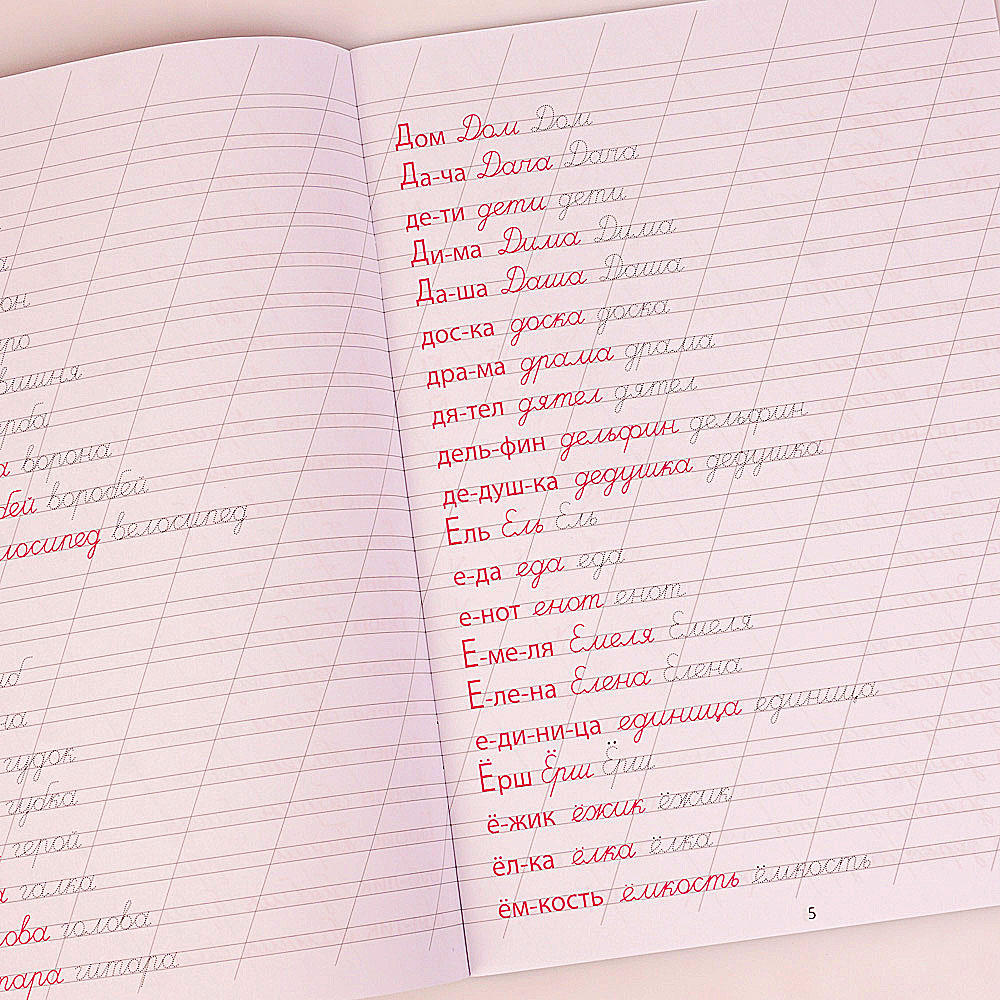 вишня
ворона
воробей
велосипед
гудок
губка
герой
галка
голова
гитара
Дом Дом Дом
Да-ча Дача Дача
де-ти дети дети
Ди-ма Дима Дима
Да-ша Даша Даша
дос-ка доска доска
дра-ма драма драма
дя-тел дятел дятел
дель-фин дельфин дельфин
де-душ-ка дедушка дедушка
Ель Ель Ель
е-да еда еда
е-нот енот енот
Е-ме-ля Емеля Емеля
Е-ле-на Елена Елена
е-ди-ни-ца единица единица
Ёрш Ёрш Ёрш
ё-жик ёжик ёжик
ёл-ка ёлка ёлка
ём-кость ёмкость ёмкость
5